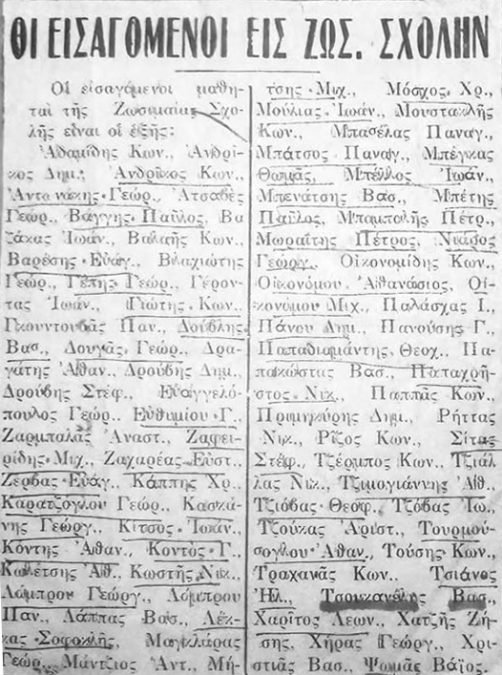 ΟΙ ΕΙΣΑΓΟΜΕΝΟΙ ΕΙΣ ΖΩΣ. ΣΧΟΛΗΝ
Οἱ εἰσαγόμενοι μαθη-
ταὶ τῆς Ζωσιμαίας Σχο-
λῆς εἶναι οἱ ἑξῆς:
Ἀδαμίδης Κων., Ἀνδρί-
κος Δημ., Ἀνδρῖκος Κων.,
Ἀντωνάκης Γεώρ., Ἀτσαβές
Γεώρ., Βάγγης Παῦλος, Βα-
ζάκας Ἰωάν., Βαλαῆς Κων.,
Βαρέσης Εὐάγ., Βλαχιώτης
Γεώρ., Γέπης Γεώρ., Γέρον-
τας Ἰωάν., Γιώτης Κων.,
Γκουντουβᾶς Παν., Δούβλης
Βασ., Δουγᾶς Γεώρ., Δρα-
γάτης Ἀθαν., Δρούδης Δημ.,
Δρούδης Στέφ., Εὐαγγελό-
πουλος Γεώρ., Εὐθυμίου Γ.,
Ζαρμπαλᾶς Ἀναστ., Ζαφει-
ρίδης Μιχ., Ζαχαρέας Εὐστ.,
Ζέρβας Εὐάγ., Κάππης Χρ.,
Καρατζόγλου Γεώρ., Κασκά-
νης Γεώργ., Κίτσος Ἰωάν.,
Κόντης Ἀθαν., Κοντὸς Γ.,
Κωλέτσης Ἀθ., Κωστῆς Νικ.,
Λάμπρου Γεώργ., Λάμπρου
Παν., Λάππας Βασ., Λέκ-
κας Σοφοκλῆς, Μαγκλάρας
Γεώρ., Μάντζιος Ἀντ., Μή-
τσης Μιχ., Μόσχος Χρ.,
Μούλιας Ἰωάν., Μουστακλῆς
Κων., Μπασέλας Παναγ.,
Μπάτσος Παναγ., Μπέγκας
Θωμᾶς, Μπέλλος Ἰωάν.,
Μπενάτσης Βασ., Μπέτης
Παῦλος, Μπαμπολῆς Πέτρ.,
Μωραΐτης Πέτρος,
Γεώργ., Οἰκονομίδης Κων.,
Οἰκονόμου Ἀθανάσιος, Οἰ-
κονόμου Μιχ., Παλάσχας Ι.,
Πάνου Δημ., Πανούσης Γ.,
Παπαδιαμάντης Θεοχ., Πα-
πακώστας Βασ., Παπαχρῆ-
στος Νικ., Παππᾶς Κων.,
Πριμηκύρης Δημ., Ρήττας
Νικ., Ρίζος Κων., Σίτας
Στέφ., Τζέρμπος Κων., Τζιάλ-
λας Νικ., Τζιμογιάννης Ἀθ.,
Τζιόβας Θεοφ., Τζόβας Ἰω.,
Τζούκας Ἀριστ., Τουρμού-
σογλου Ἀθαν., Τούσης Κων.,
Τραχανᾶς Κων., Τσιάνος
Ἠλ., Τσουκανέλης Βασ.,
Χαρίτος Λεων., Χατζῆς Ζή-
σης, Χήρας Γεώργ., Χρι-
στιᾶς Βασ., Ψωμᾶς Βάϊος.